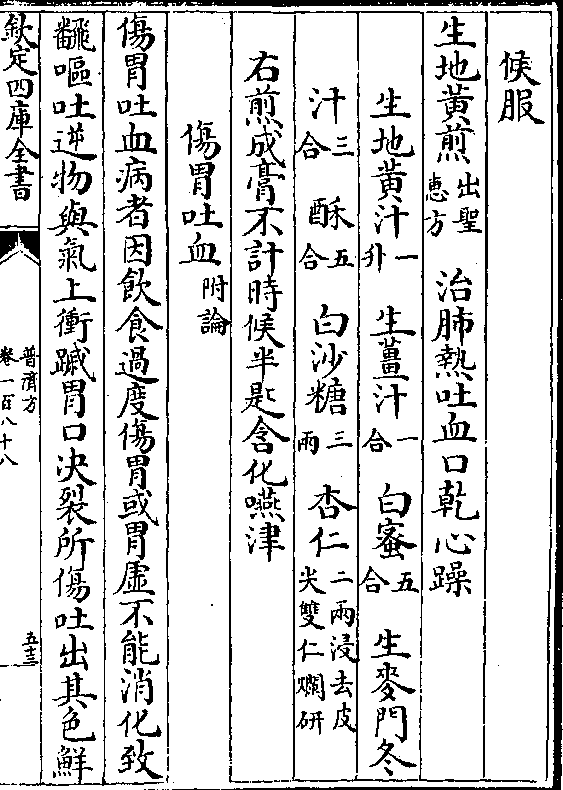 候服
生地黄煎出聖惠方　治肺熱吐血口乾心躁
生地黄汁一升　生薑汁一合　白蜜五合　生麥門冬
汁三合　酥五合　白沙糖三兩　杏仁二兩浸去皮尖雙仁爛研
右煎成膏不計時候半匙含化嚥津
傷胃吐血附論
傷胃吐血病者因飲食過度傷胃或胃虛不能消化致
飜嘔吐逆物與氣上衝蹴胃口决裂所傷吐出其色鮮
欽定四庫全書
普濟方
卷一百八十八
五十三